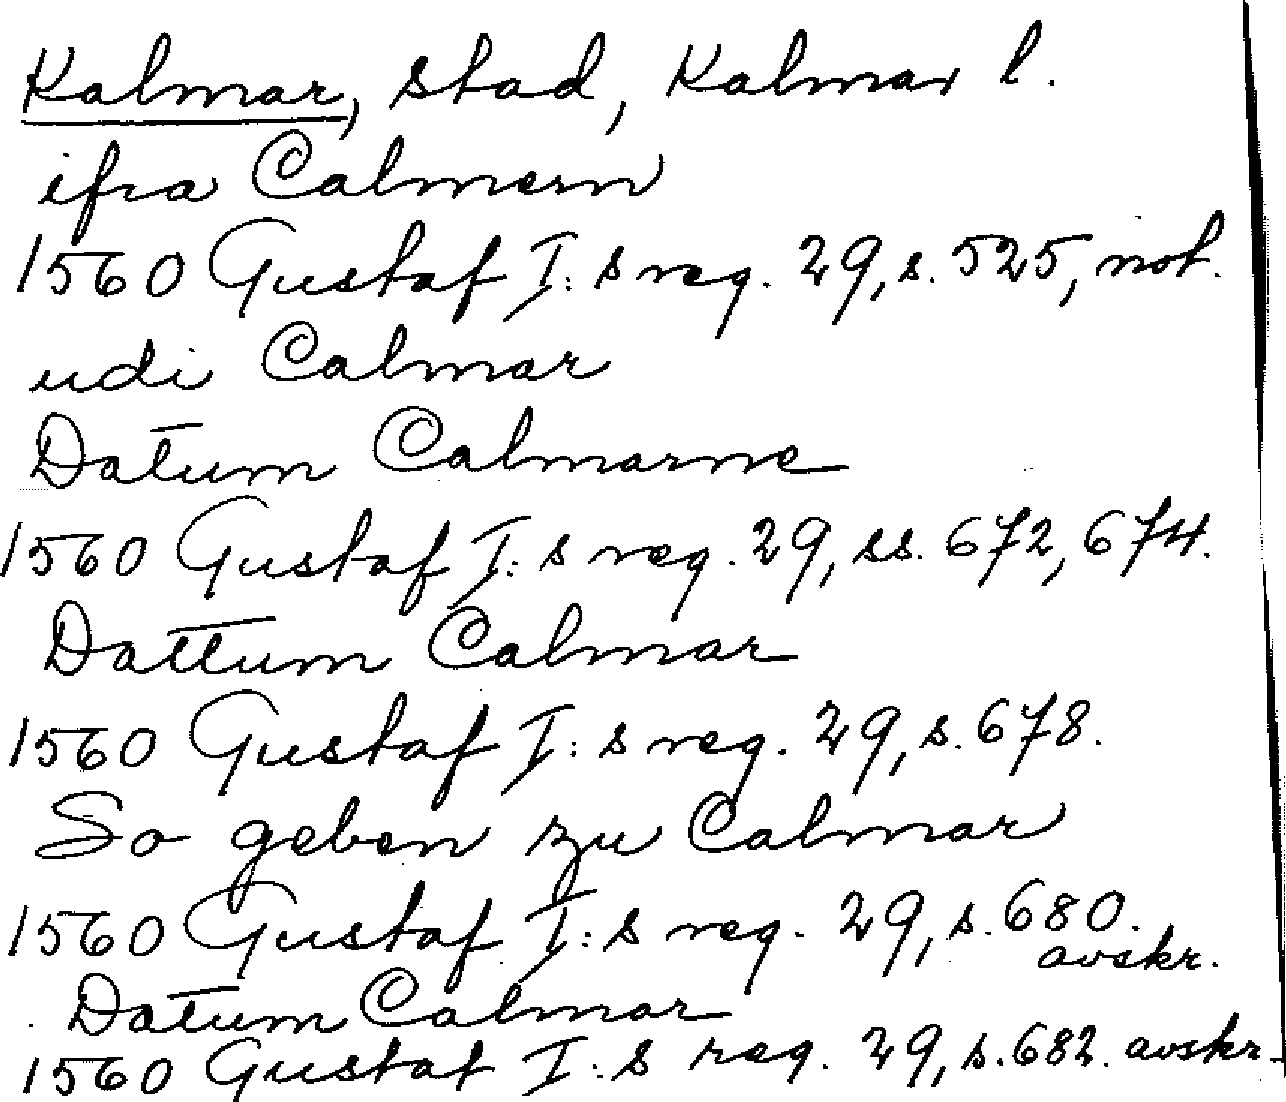 Kalmar, stad, Kalmar l.
ifra Calmern
1560 Gustaf I:s reg. 29, s. 525, not.
udi Calmar
Datum Calmarne
1560 Gustaf I:s reg. 29, ss. 672, 674.
Dattum Calmar
1560 Gustaf I:s reg. 29, s. 678.
So geben zu Calmar
1560 Gustaf I:s reg. 29, s. 680.
avskr.
Datum Calmar
1560 Gustaf I:s reg. 29, s. 682. avskr.